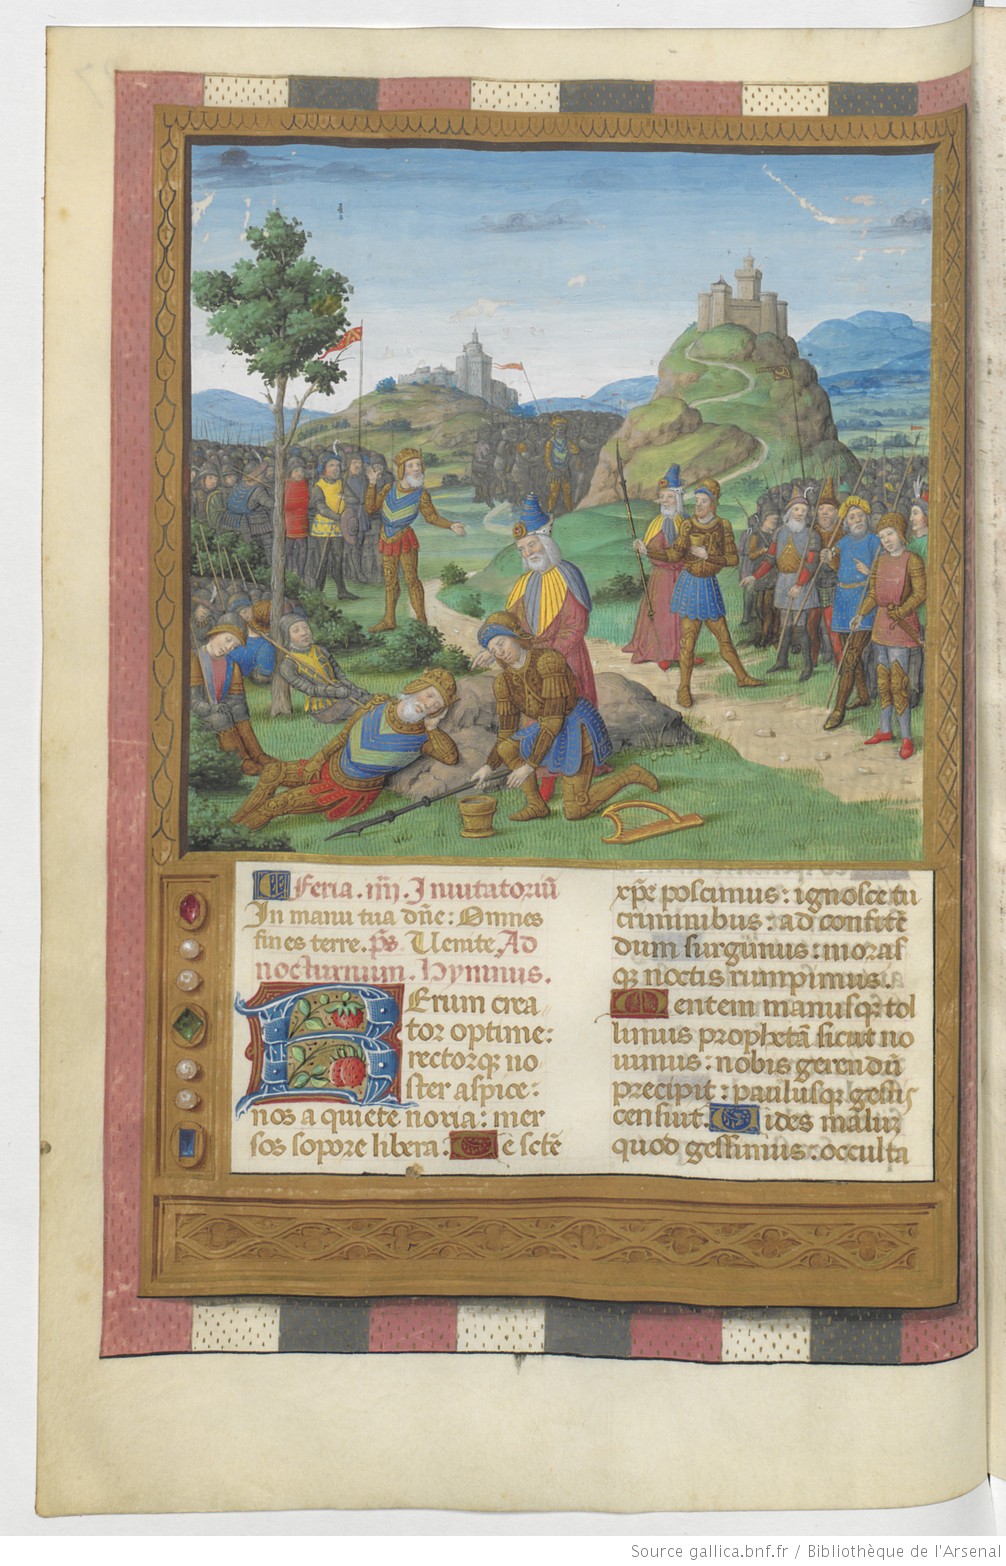 Feria .iiij. Inuitatoriū
In manu tua dn̄e: Omnes
fines terre. p̄s Uenite, Ad
nocturnum. Hymnus.
Rerum crea
tor optime:
rectorqꝫ no
ster aspice:
nos a quiete noxia: mer
sos sopore libera. Te sctē
xp̄e poscimus: ignosce tu
criminibus: ad confitē
dum surgimus: moras
qꝫ noctis rumpimus.
Mentem manusqꝫ tol
limus prophetā sicut no
uimus: nobis gerendū
precipit: paulusqꝫ gestis
censuit. Uides malum
quod gessimus: occulta
Source gallica.bnf.fr / Bibliothèque de l'Arsenal